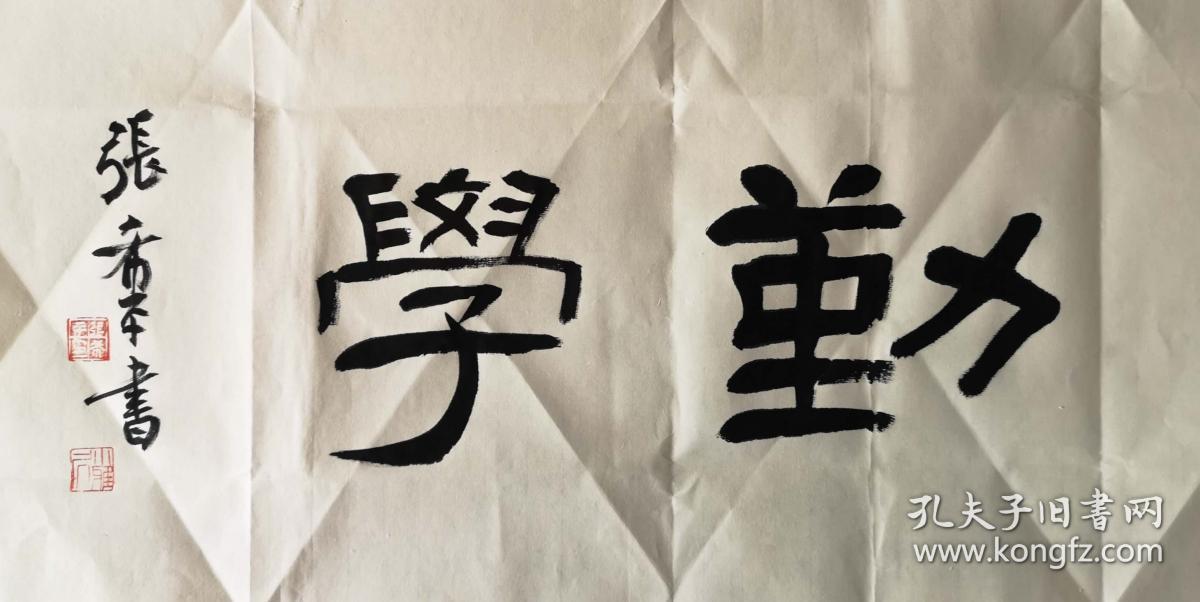 勤學
張希本書
孔夫子旧書网
www.kongfz.com